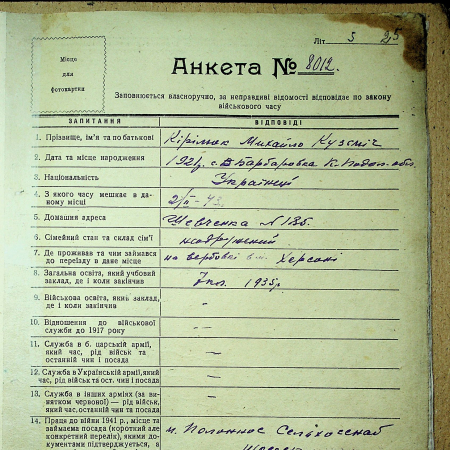 Літ 5 25
Місце
для
фотокартки
Анкета № 8012.
Заповнюється власноручно, за неправдиві відомості відповідає по закону
військового часу
ЗАПИТАННЯ ВІДПОВІДІ
1. Прізвище, ім'я та по батькові Кірілюк Михайло Кузміч
2. Дата та місце народження 1921р. с. Варваровка К. Подол. обл.
3. Національність Українец
4. З якого часу мешкає в даному місці 2/II - 43.
5. Домашня адреса Шевченка №135.
6. Сімейний стан та склад сім'ї
7. Де проживав та чим займався
до переїзду в дане місце на вербовкі в м. Херсоні
8. Загальна освіта, який учбовий
заклад, де і коли закінчив 7кл. 1935р.
9. Військова освіта, який заклад,
де і коли закінчив "
10. Відношення до військової
служби до 1917 року "
11. Служба в б. царській армії,
який час, рід військ та
останній чин і посада —
12. Служба в Українській армії, який
час, рід військ та ост. чин і посада —
13. Служба в інших арміях (за винятком червоної) — рід військ,
який час, останній чин та посада —
14. Праця до війни 1941 р., місце та
займаєма посада (короткий але
конкретний перелік), якими документами підтверджується, в м. Полонное